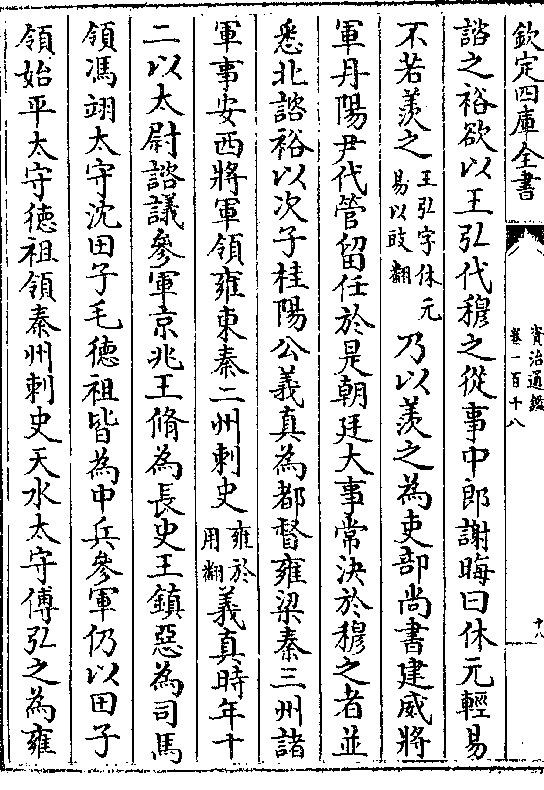 欽定四庫全書
資治通鑑
卷一百十八
十八
諮之裕欲以王弘代穆之從事中郎謝晦曰休元輕易
不若羡之王弘字休元易以豉翻乃以羡之為吏部尚書建威將
軍丹陽尹代管留任於是朝廷大事常決於穆之者並
悉北諮裕以次子桂陽公義真為都督雍梁秦三州諸
軍事安西將軍領雍東秦二州刺史雍於用翻義真時年十
二以太尉諮議參軍京兆王脩為長史王鎮惡為司馬
領馮翊太守沈田子毛德祖皆為中兵參軍仍以田子
領始平太守德祖領秦州刺史天水太守傅弘之為雍